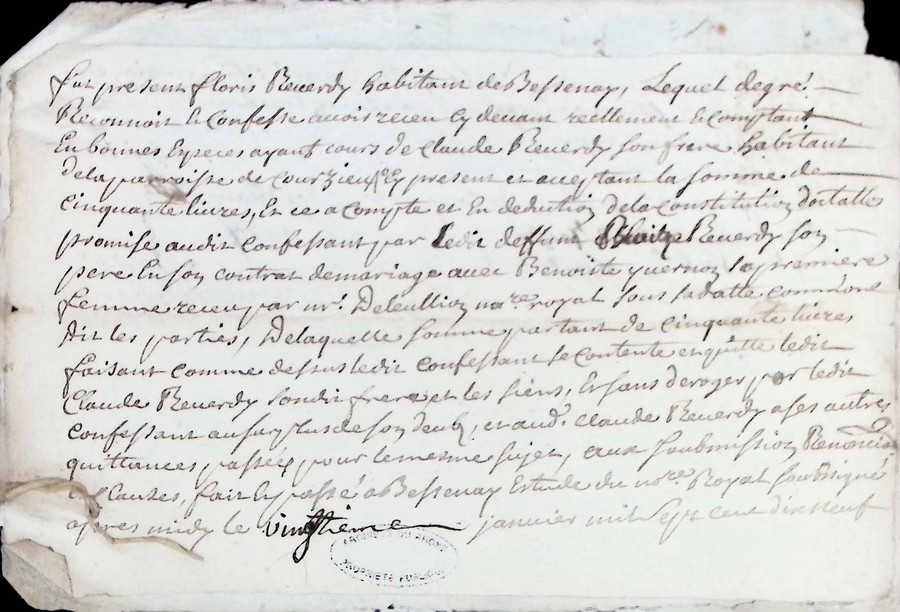 fut present floris Reverdy habitant de Bessenay, Lequel de gré
Reconnoit et Confesse avoir receu cy devant reellement et comptant
En bonnes Especes ayant cours de Claude Reverdy son frere habitant
de la parroisse de Courzieu Cy present et acceptant la somme de
cinquante livres, Et ce a Compte et En deduction de la constitution dotalle
promise audit confessant par ledit deffunt Reverdy son
pere En son contrat de mariage avec Benoiste yvernoz sa premiere
femme receu par mr. Deleullion nore royal sous sa datte comm
dit les parties, De laquelle somme partant de cinquante livres
faisant comme dessus ledit confessant se contente et quitte ledit
Claude Reverdy sondit frere et les siens, Et sans deroger par ledit
confessant au surplus de son deub, et aud. Claude Reverdy a ses autres
quittances passées pour le mesme sujet, aux soubmission Renoncia
et Clauses, fait Et passé a Bessenay Estude du nore Royal soubsigné
apres midy le vingtieme janvier mil sept cent dix neuf
PROPRIETE PUBLIQUE